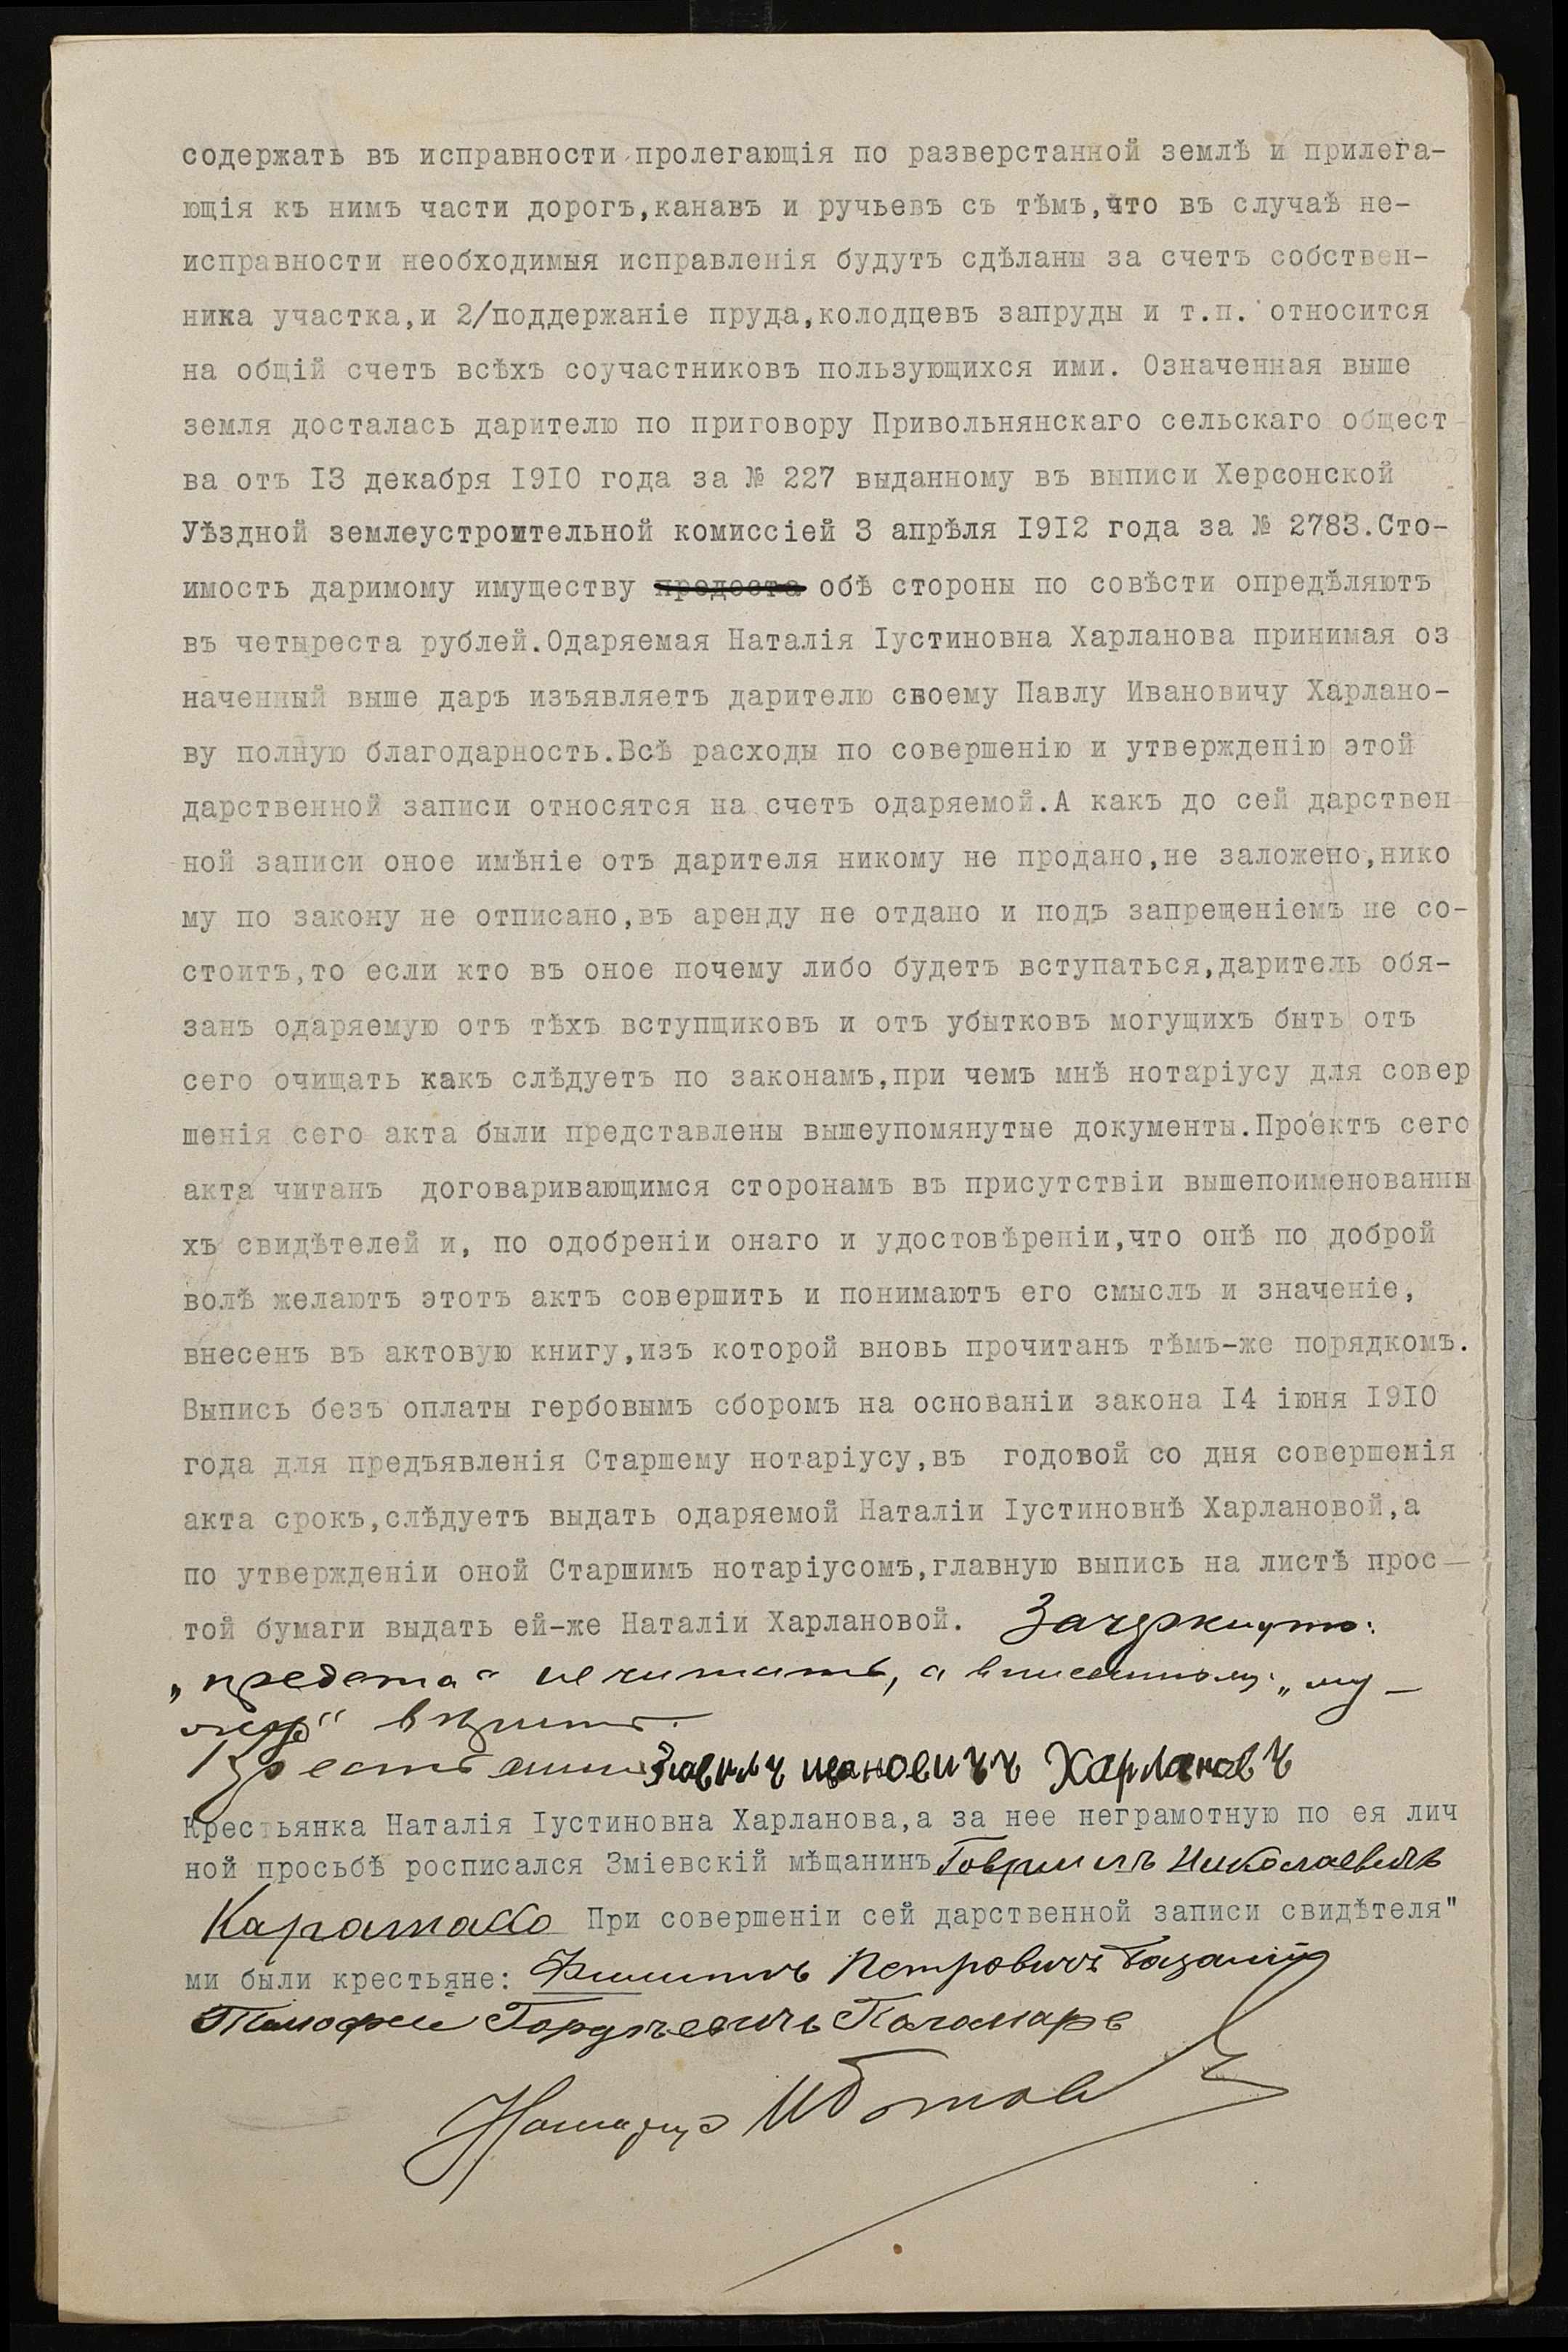 содержать въ исправности пролегающія по разверстанной землѣ и прилега-
ющія къ нимъ части дорогъ,канавъ и ручьевъ съ тѣмъ,что въ случаѣ не-
исправности необходимыя исправленія будутъ сдѣланы за счетъ собствен-
ника участка,и 2/поддержаніе пруда,колодцевъ запруды и т.п. относится
на общій счетъ всѣхъ соучастниковъ пользующихся ими. Означенная выше
земля досталась дарителю по приговору Привольнянскаго сельскаго общест
ва отъ I3 декабря I9I0 года за № 227 выданному въ выписи Херсонской
Уѣздной землеустроительной комиссіей 3 апрѣля I9I2 года за № 2783.Сто-
имость даримому имуществу предоста обѣ стороны по совѣсти опредѣляютъ
въ четыреста рублей.Одаряемая Наталія Іустиновна Харланова принимая оз
наченный выше даръ изъявляетъ дарителю своему Павлу Ивановичу Харлано-
ву полную благодарность.Всѣ расходы по совершенію и утвержденію этой
дарственной записи относятся на счетъ одаряемой.А какъ до сей дарствен
ной записи оное имѣніе отъ дарителя никому не продано,не заложено,нико
му по закону не отписано,въ аренду не отдано и подъ запрещеніемъ не со-
стоитъ,то если кто въ оное почему либо будетъ вступаться,даритель обя-
занъ одаряемую отъ тѣхъ вступщиковъ и отъ убытковъ могущихъ быть отъ
сего очищать какъ слѣдуетъ по законамъ,при чемъ мнѣ нотаріусу для совер
шенія сего акта были представлены вышеупомянутые документы.Проектъ сего
акта читанъ договаривающимся сторонамъ въ присутствіи вышепоименованны
хъ свидѣтелей и, по одобреніи онаго и удостовѣреніи,что онѣ по доброй
волѣ желаютъ этотъ актъ совершить и понимаютъ его смыслъ и значеніе,
внесенъ въ актовую книгу,изъ которой вновь прочитанъ тѣмъ-же порядкомъ.
Выпись безъ оплаты гербовымъ сборомъ на основаніи закона I4 іюня I9I0
года для предъявленія Старшему нотаріусу,въ годовой со дня совершенія
акта срокъ,слѣдуетъ выдать одаряемой Наталіи Іустиновнѣ Харлановой,а
по утвержденіи оной Старшимъ нотаріусомъ,главную выпись на листѣ прос
той бумаги выдать ей-же Наталіи Харлановой. Зачеркнуто:
не читать, а
Крестьянинъ Павилъ ивановичъ Харлановъ
Крестьянка Наталія Іустиновна Харланова,а за нее неграмотную по ея лич
ной просьбѣ росписался Зміевскій мѣщанинъ Гавриилъ Николаевичъ
При совершеніи сей дарственной записи свидѣтеля"
ми были крестьяне: Филиппъ Петровичъ
Тимофей Гордѣевичъ Паламарь
Нотаріусъ